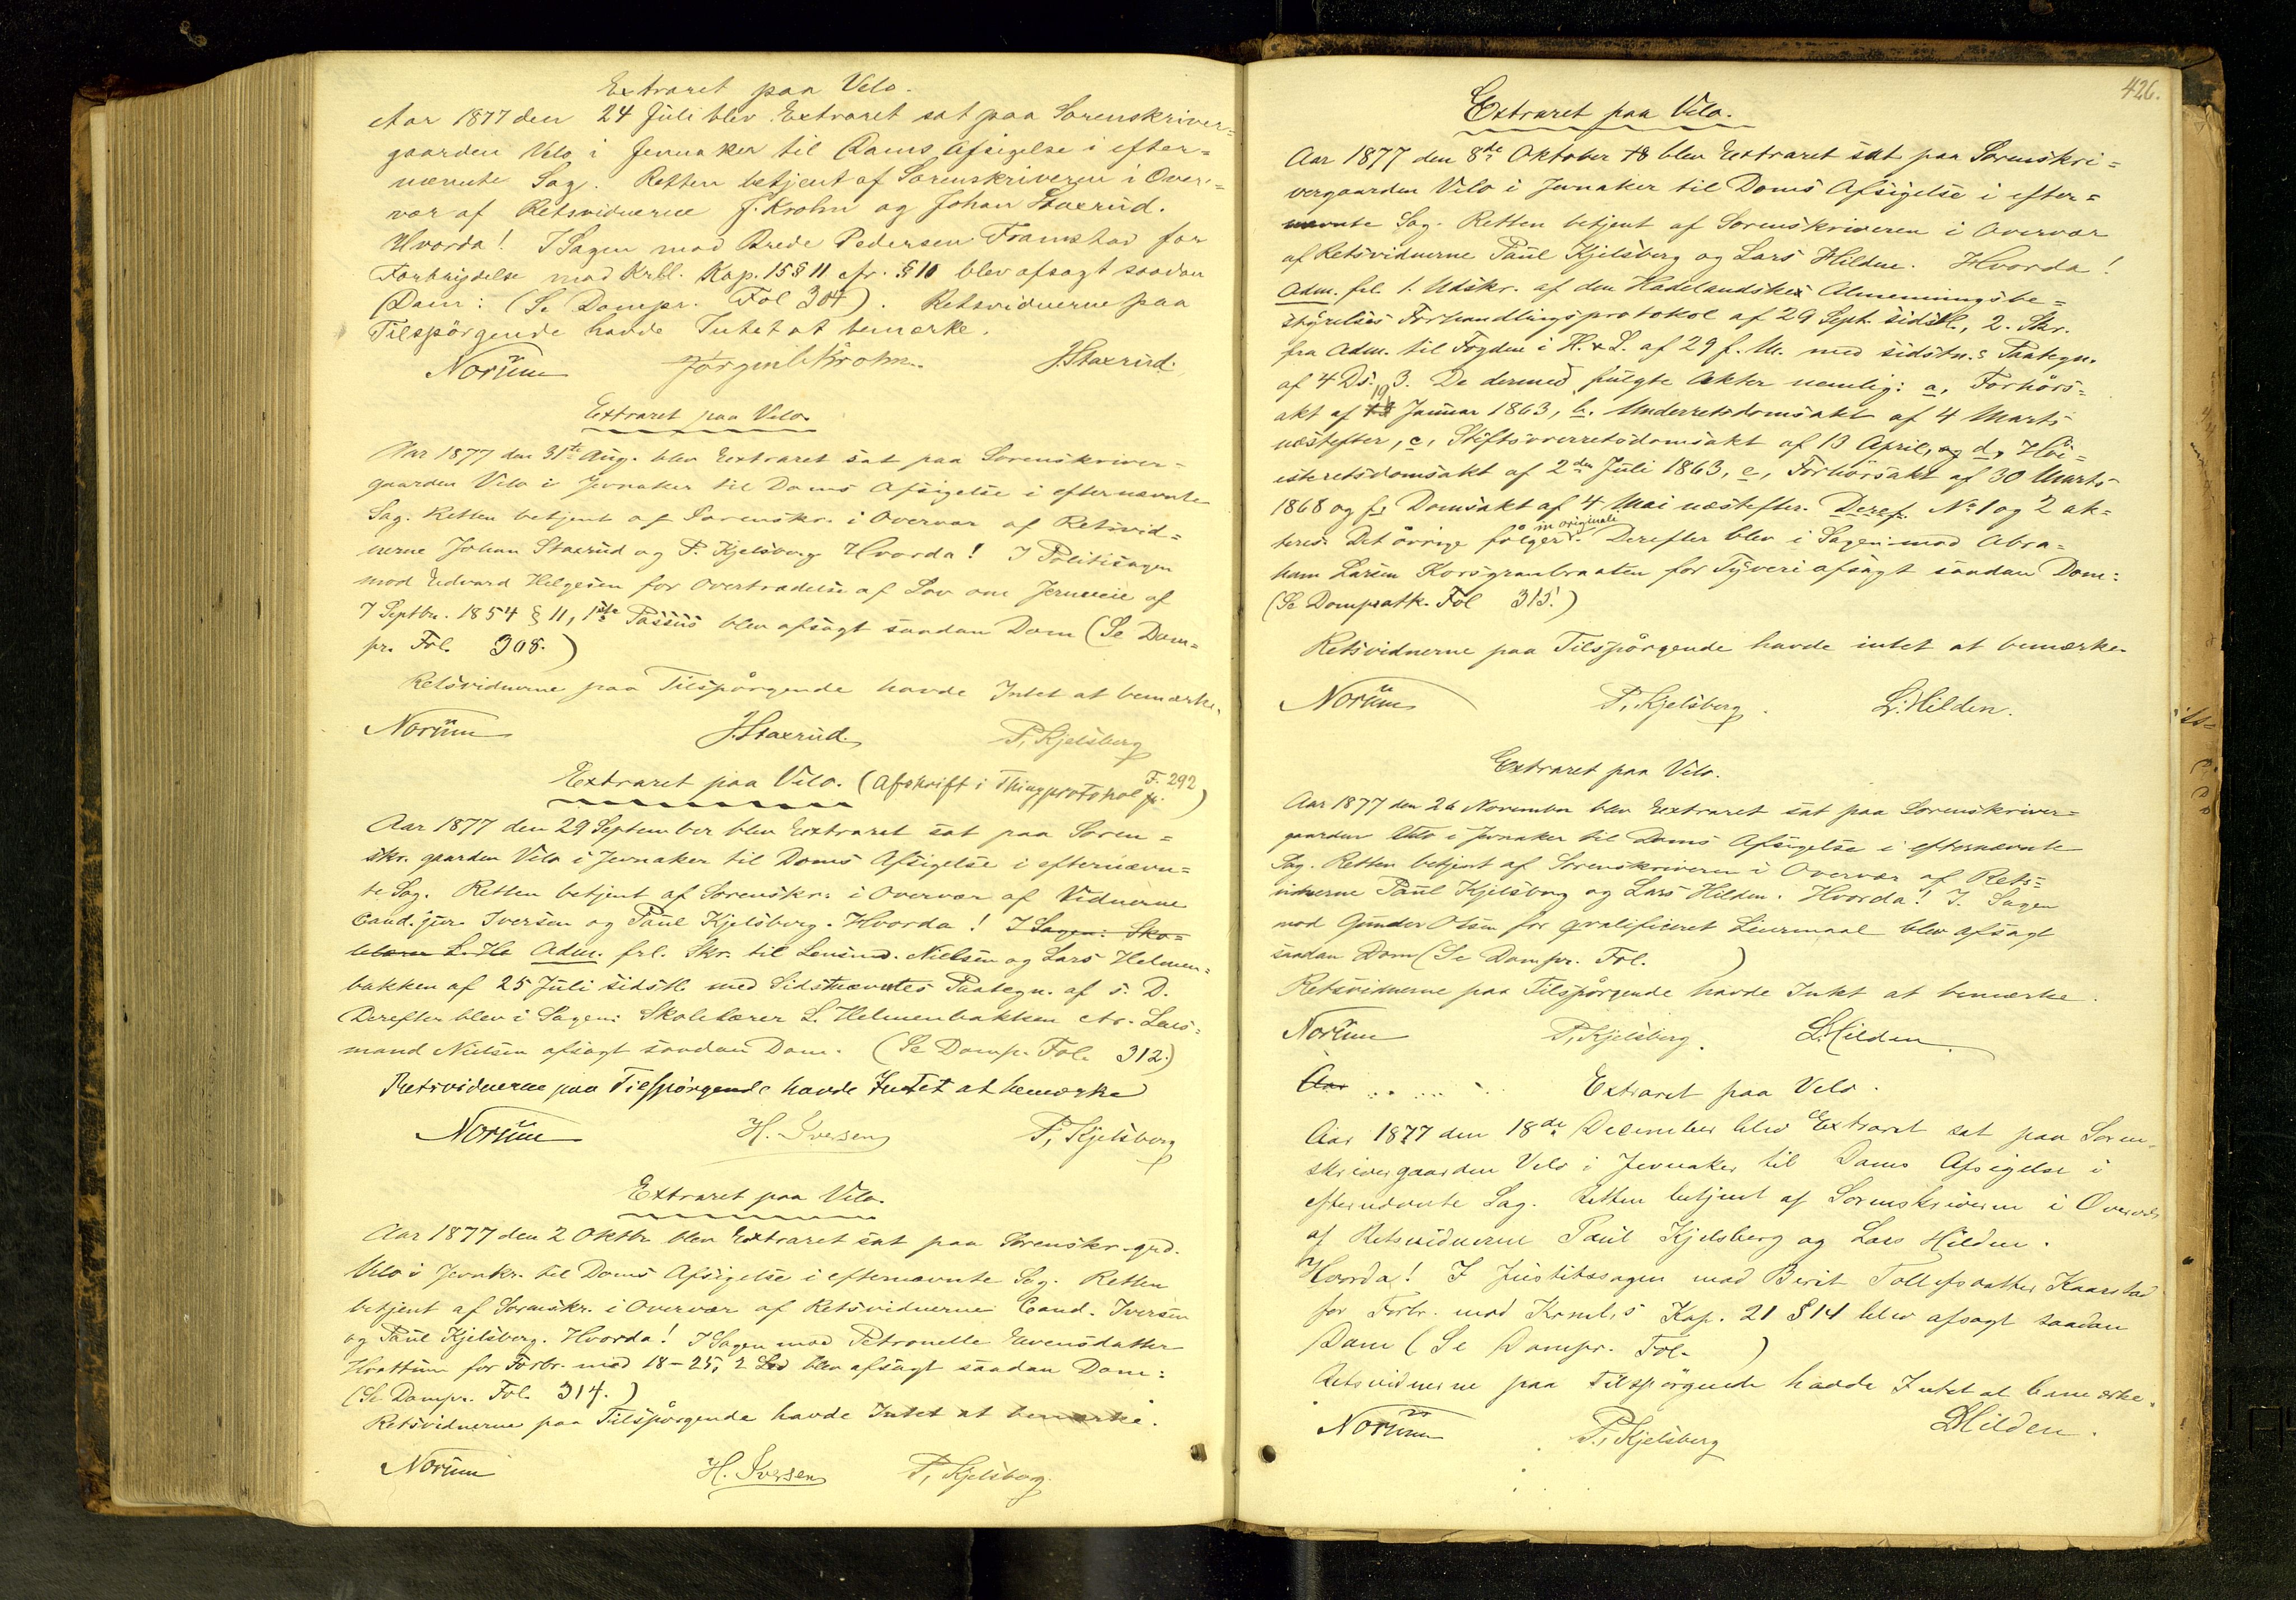 Extraret paa Velo.
Aar 1877 den 24 Juli blev Extraret sat paa Sorenskriver=
gaarden Velo i Jevnaker til Doms Afsigelse i efter=
nævnte Sag. Retten betjent af Sorenskriveren i Over=
vær af Retsvidnerne J. Krohn og Johan Staxrud.
Hvorda! I Sagen mod Brede Pedersen Framstad for
Forbrydelse mod Krbl. Kap. 15 § 11 cfr. § 10 blev afsagt saadan
Dom: (Se Dompr. Fol 304). Retsvidnerne paa
Tilspörgende havde Intet at bemærke.
Norum Jörgen Krohn. J. Staxrud.
Extraret paa Velo.
Aar 1877 den 31te Aug. blev Extraret sat paa Sorenskriver=
gaarden Velo i Jevnaker til Doms Afsigelse i efternævnte
Sag. Retten betjent af Sorenskr. i Overvær af Retsvid=
nerne Johan Staxrud og P. Kjelsberg. Hvorda! I Politisagen
mod Edvard Helgesen for Overtrædelse af Lov om Jernveie af
7 Septbr. 1854 § 11, 1ste Passus blev afsagt saadan Dom (Se Dom=
pr. Fol. 308.)
Retsvidnerne paa Tilspørgende havde Intet at bemærke.
Norum J. Staxrud. P. Kjelsberg
Extraret paa Velo. (Afskrift i Thingprotokol F. 292)
Aar 1877 den 29 September blev Extraret sat paa Soren=
skr. gaarden Velo i Jevnaker til Doms Afsigelse i efternævn=
te Sag. Retten betjent af Sorenskr. i Overvær af Vidnerne
Cand. jur. Iversen og Paul Kjelsberg. Hvorda! I Sagen: Sko=
lelærer L. He Adm. frl. Skr. til Lensmd. Nielsen og Lars Helmen=
bakken af 25 Juli sidstl. med Sidstnævntes Paategn. af s. D.
Derefter blev i Sagen: Skolelærer L. Helmenbakken ctr. Lens=
mand Nielsen afsagt saadan Dom. (Se Dompr. Fol. 312.)
Retsvidnerne paa Tilspörgende havde Intet at bemærke
Norum H. Iversen P. Kjelsberg
Extraret paa Velo.
Aar 1877 den 2 Oktbr. blev Extraret sat paa Sorenskr.grd.
Velo i Jevnkr. til Doms Afsigelse i efternævnte Sag. Retten
betjent af Sorenskr. i Overvær af Retsvidnerne Cand. Iversen
og Paul Kjelsberg. Hvorda! I Sagen mod Petronelle Evensdatter
for Forbr. mod 18-25, 2 Led blev afsagt saadan Dom:
(Se Dompr. Fol. 314.)
Retsvidnerne paa Tilspørgende havde Intet at bemærke.
Norum H. Iversen P. Kjelsberg.
426.
Extraret paa Velo.
Aar 1877 den 8de Oktober blev Extraret sat paa Sorenskri=
vergaarden Velo i Jevnaker til Doms Afsigelse i efter=
nævnte Sag. Retten betjent af Sorenskriveren i Overvær
af Retsvidnerne Paul Kjelsberg og Lars Hilden. Hvorda!
Adm. frl. 1. Udskr. af den Hadelandske Almenningsbe=
styrelses Forhandlingsprotokol af 29 Sept. sidstl., 2. Skr.
fra Adm. til Fogden i H. & L. af 29 f. M. med sidstn.s Paategn.
af 4 Ds. 3. De dermed fulgte Akter nemlig: a, Forhörs=
akt af 19 Januar 1863, b. Underretsdomsakt af 4 Marts
næstefter, c, Stiftsoverretsdomsakt af 13 April, og d, Höi=
esteretsdomsakt af 2den Juli 1863, e, Forhørsakt af 30 Marts
1868 og f. Domsakt af 4 Mai næstefter. Deraf No 1 og 2 ak=
teres. Det övrige fölger in originale. Derefter blev i Sagen mod Abra=
ham Larsen Korsgranbraaten for Tyveri afsagt saadan Dom:
(Se Domprotk. Fol 315.)
Retsvidnerne paa Tilspørgende havde intet at bemærke.
Norum P. Kjelsberg. L. Hilden.
Extraret paa Velo.
Aar 1877 den 26 November blev Extraret sat paa Sorenskriver=
gaarden Velo i Jevnaker til Doms Afsigelse i efternævnte
Sag. Retten betjent af Sorenskriveren i Overvær af Rets=
vidnerne Paul Kjelsberg og Lars Hilden. Hvorda! I Sagen
mod Gunder Olsen for qvalificeret Leiermaal blev afsagt
saadan Dom (Se Dompr. Fol. )
Retsvidnerne paa Tilspørgende havde Intet at bemærke.
Norum P. Kjelsberg. L. Hilden
Aar Extraret paa Velo.
Aar 1877 den 18de December blev Extraret sat paa Soren=
skrivergaarden Velo i Jevnaker til Doms Afsigelse i
efternævnte Sag. Retten betjent af Sorenskriveren i Overvær
af Retsvidnerne Paul Kjelsberg og Lars Hilden.
Hvorda! I Justitssagen mod Berit Tollefsdatter Kaarstad
for Forbr. mod Krml.s Kap. 21 § 14 blev afsagt saadan
Dom (Se Dompr. Fol. )
Retsvidnerne paa Tilspörgende havde Intet at bemærke.
Norum P. Kjelsberg L. Hilden.